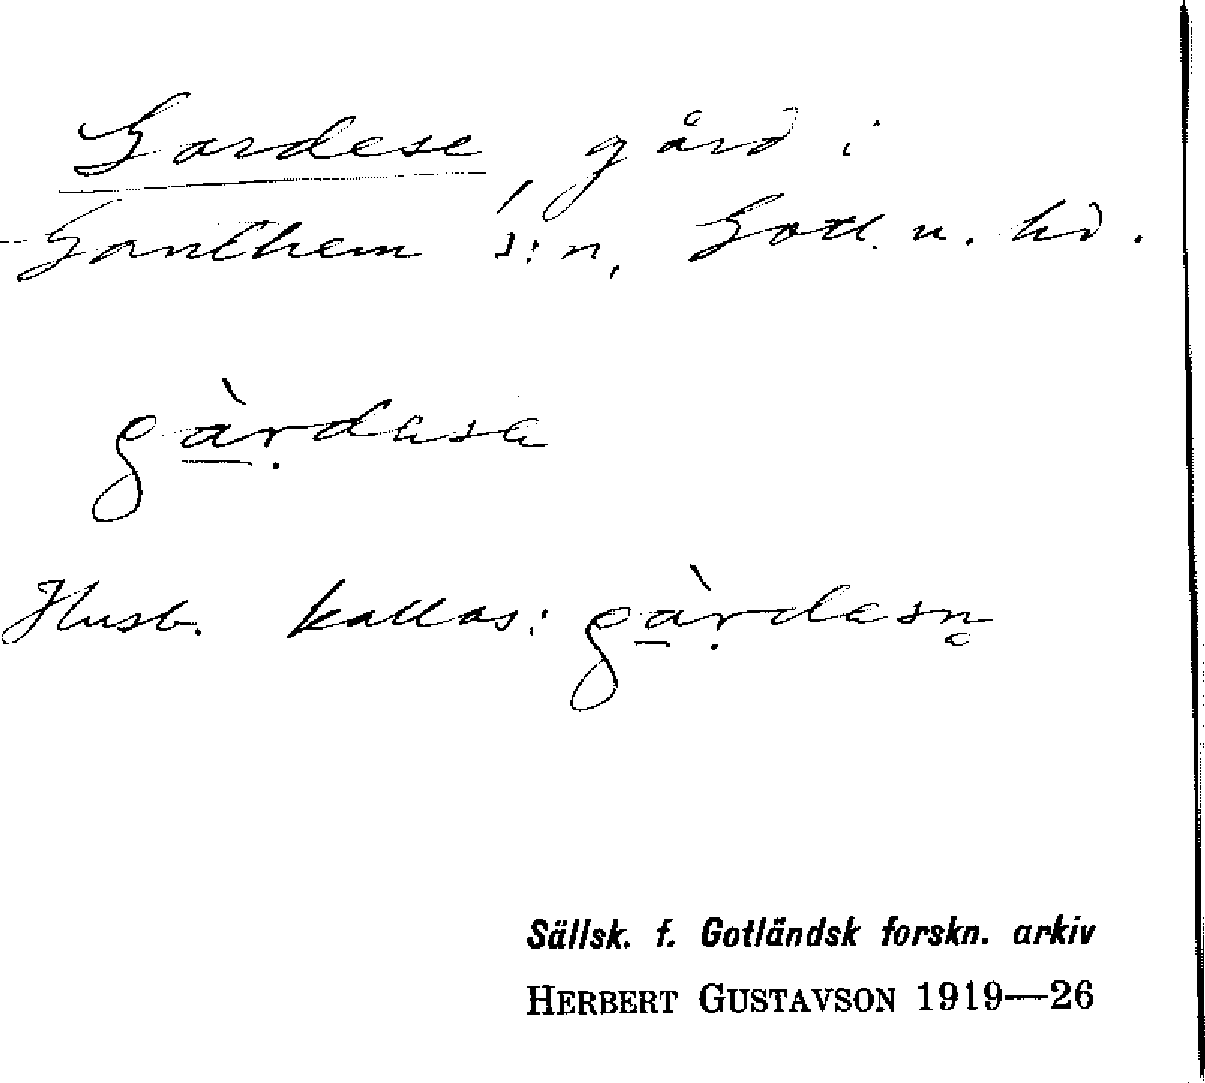 Gardese gård i
Ganthem s:n, Gotl. n. hd.
gàṛdasa
Husb. kallas: gàṛdasn̥
Sällsk. f. Gotländsk forskn. arkiv
HERBERT GUSTAVSON 1919—26